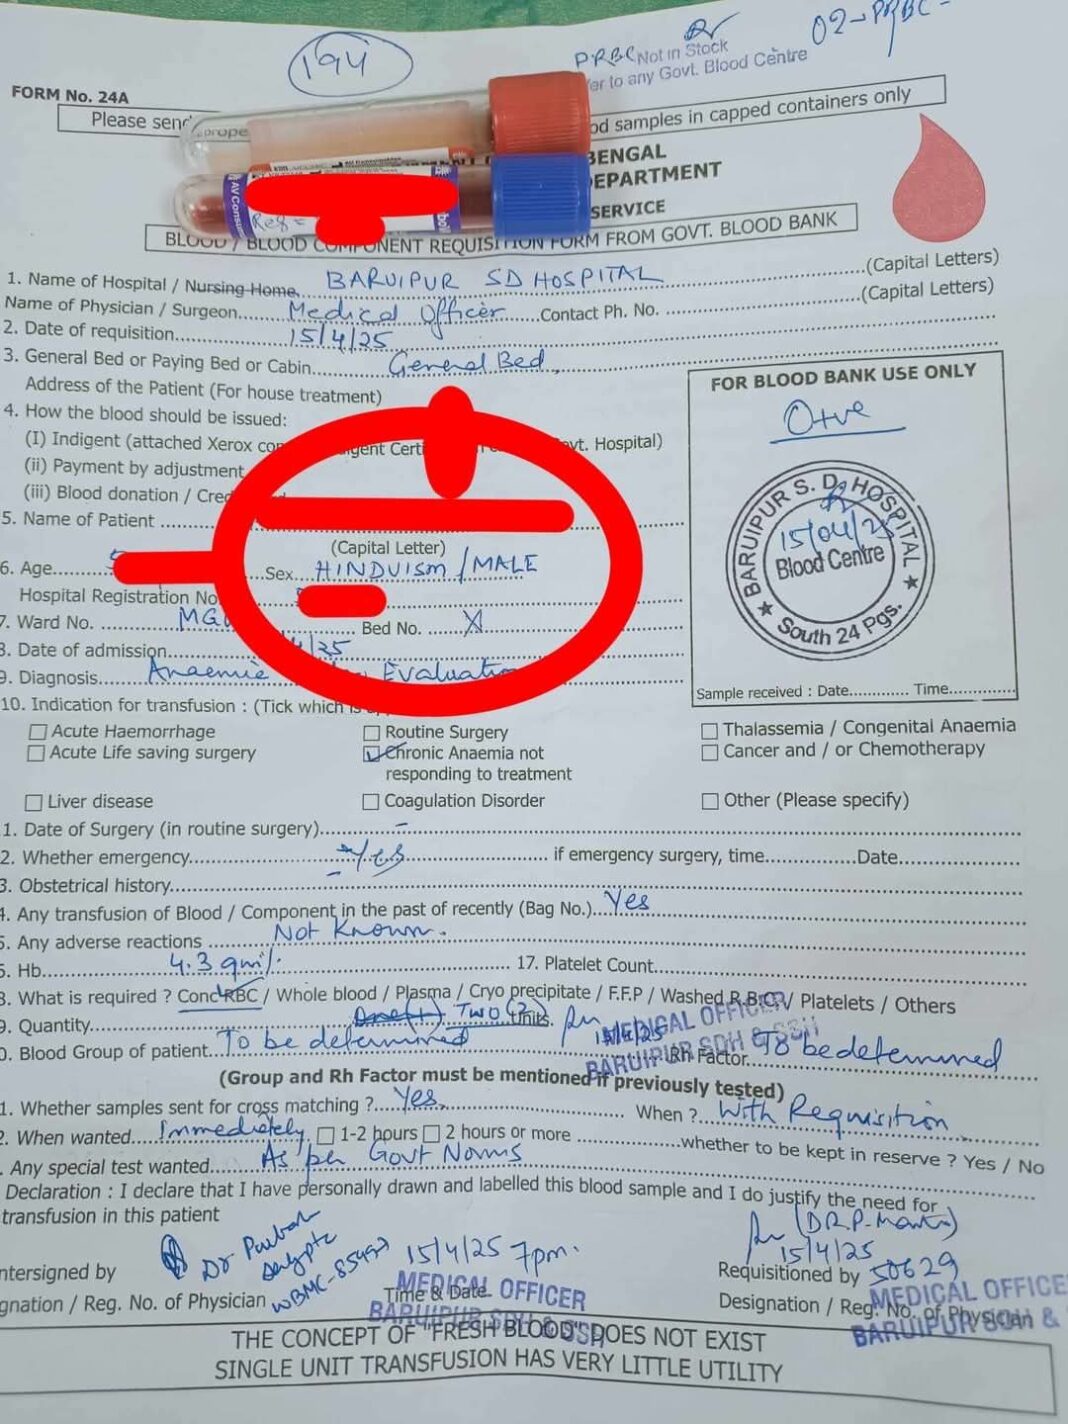 194
PRBC Not in Stock
er to any Govt. Blood Centre
02-PRBC
FORM No. 24A
Please send prope od samples in capped containers only
BENGAL
EPARTMENT
SERVICE
AV Consu
Reg =
BLOOD / BLOOD COMPONENT REQUISITION FORM FROM GOVT. BLOOD BANK
1. Name of Hospital / Nursing Home BARUIPUR SD HOSPITAL (Capital Letters)
Name of Physician / Surgeon Medical Officer Contact Ph. No. (Capital Letters)
2. Date of requisition 15/4/25
3. General Bed or Paying Bed or Cabin General Bed
Address of the Patient (For house treatment)
4. How the blood should be issued:
(I) Indigent (attached Xerox co igent Certi ovt. Hospital)
(ii) Payment by adjustment
(iii) Blood donation / Cred
5. Name of Patient
(Capital Letter)
6. Age Sex HINDUISM / MALE
Hospital Registration No
7. Ward No. Bed No. XI
8. Date of admission /25
9. Diagnosis Anaemia Evaluation
FOR BLOOD BANK USE ONLY
O+ve
BARUIPUR S. D. HOSPITAL
15/04/25
Blood Centre
★ South 24 Pgs. ★
Sample received : Date Time
10. Indication for transfusion : (Tick which is
Acute Haemorrhage Routine Surgery Thalassemia / Congenital Anaemia
Acute Life saving surgery Chronic Anaemia not Cancer and / or Chemotherapy
responding to treatment
Liver disease Coagulation Disorder Other (Please specify)
1. Date of Surgery (in routine surgery) -
2. Whether emergency Yes if emergency surgery, time Date
3. Obstetrical history
4. Any transfusion of Blood / Component in the past of recently (Bag No.) Yes
5. Any adverse reactions Not Known.
6. Hb 4.3 gm% 17. Platelet Count
8. What is required ? Conc RBC / Whole blood / Plasma / Cryo precipitate / F.F.P / Washed R.B.C. / Platelets / Others
9. Quantity One (1) Two (2) Units.
15/4/25
MEDICAL OFFICER
BARUIPUR SDH & SSH
0. Blood Group of patient To be determined Rh Factor To be determined
(Group and Rh Factor must be mentioned if previously tested)
1. Whether samples sent for cross matching ? Yes, When ? With Requisition
2. When wanted Immediately 1-2 hours 2 hours or more whether to be kept in reserve ? Yes / No
Any special test wanted As per Govt Norms
Declaration : I declare that I have personally drawn and labelled this blood sample and I do justify the need for
transfusion in this patient
ntersigned by Dr 15/4/25 7pm.
(DR.P.
15/4/25
Requisitioned by 50629
gnation / Reg. No. of Physician WBMC- Time & Date Designation / Reg. No. of Physician
MEDICAL OFFICER MEDICAL OFFICE
BARUIPUR SDH & SSH BARUIPUR SDH &
THE CONCEPT OF "FRESH BLOOD" DOES NOT EXIST
SINGLE UNIT TRANSFUSION HAS VERY LITTLE UTILITY